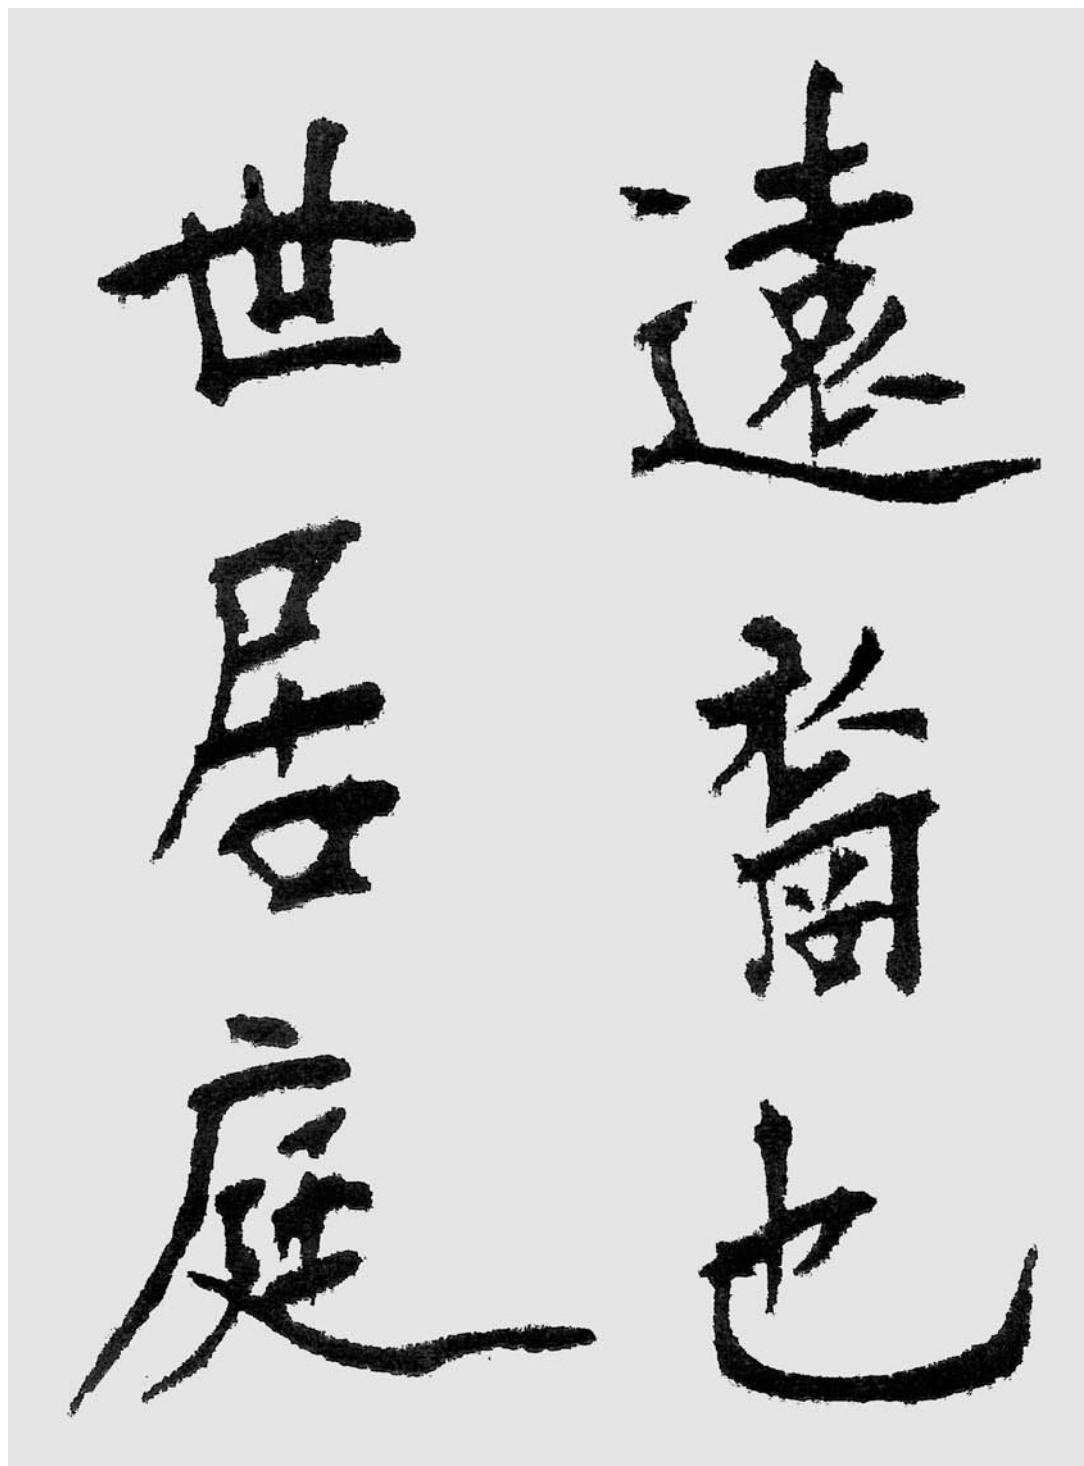 遠裔也
世居庭